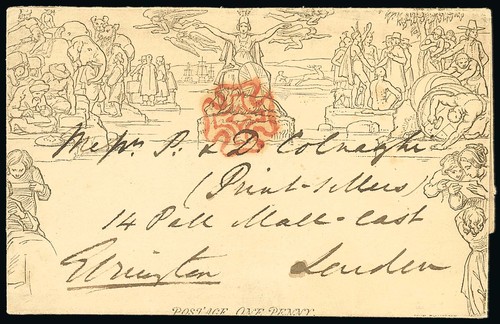 Messrs. P. & D. Colnaghi
(Print-Sellers)
14 Pall Mall-East
London
POSTAGE ONE PENNY.